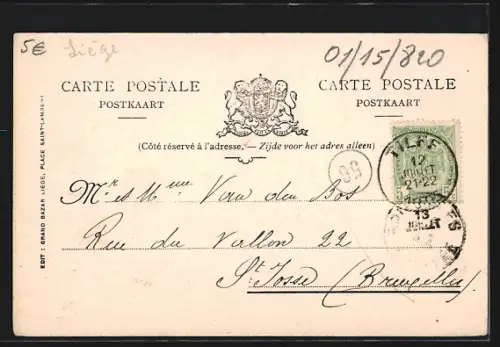 5€ Liège
01/15/820
CARTE POSTALE
POSTKAART
CARTE POSTALE
POSTKAART
(Côté réservé à l'adresse. — Zijde voor het adres alleen)
TILFF
12
21-22
56
Mr et Mme Van den Bos
Rue du Vallon 22
St Josse (Bruxelles)
13
JUILLET
EDIT : GRAND BAZAR LIEGE, PLACE SAINT-LAMBERT